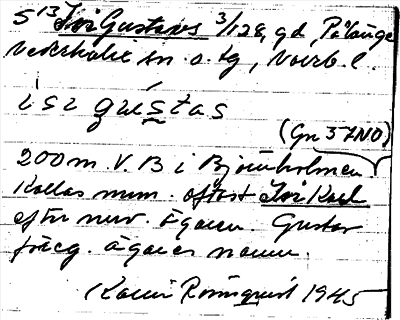 5 13 Isi Gustavs 3/128, gd, Pålänge
Nederkalix sn o. tg, Norrb. l.
isi gústas
(Gn 3 ZNO)
200 m. V. B i Björnholmen
Kallas num. oftast Isi Karl
efter nuv. ägaren. Gustav
föreg. ägares namn.
Karin Rönnquist 1945